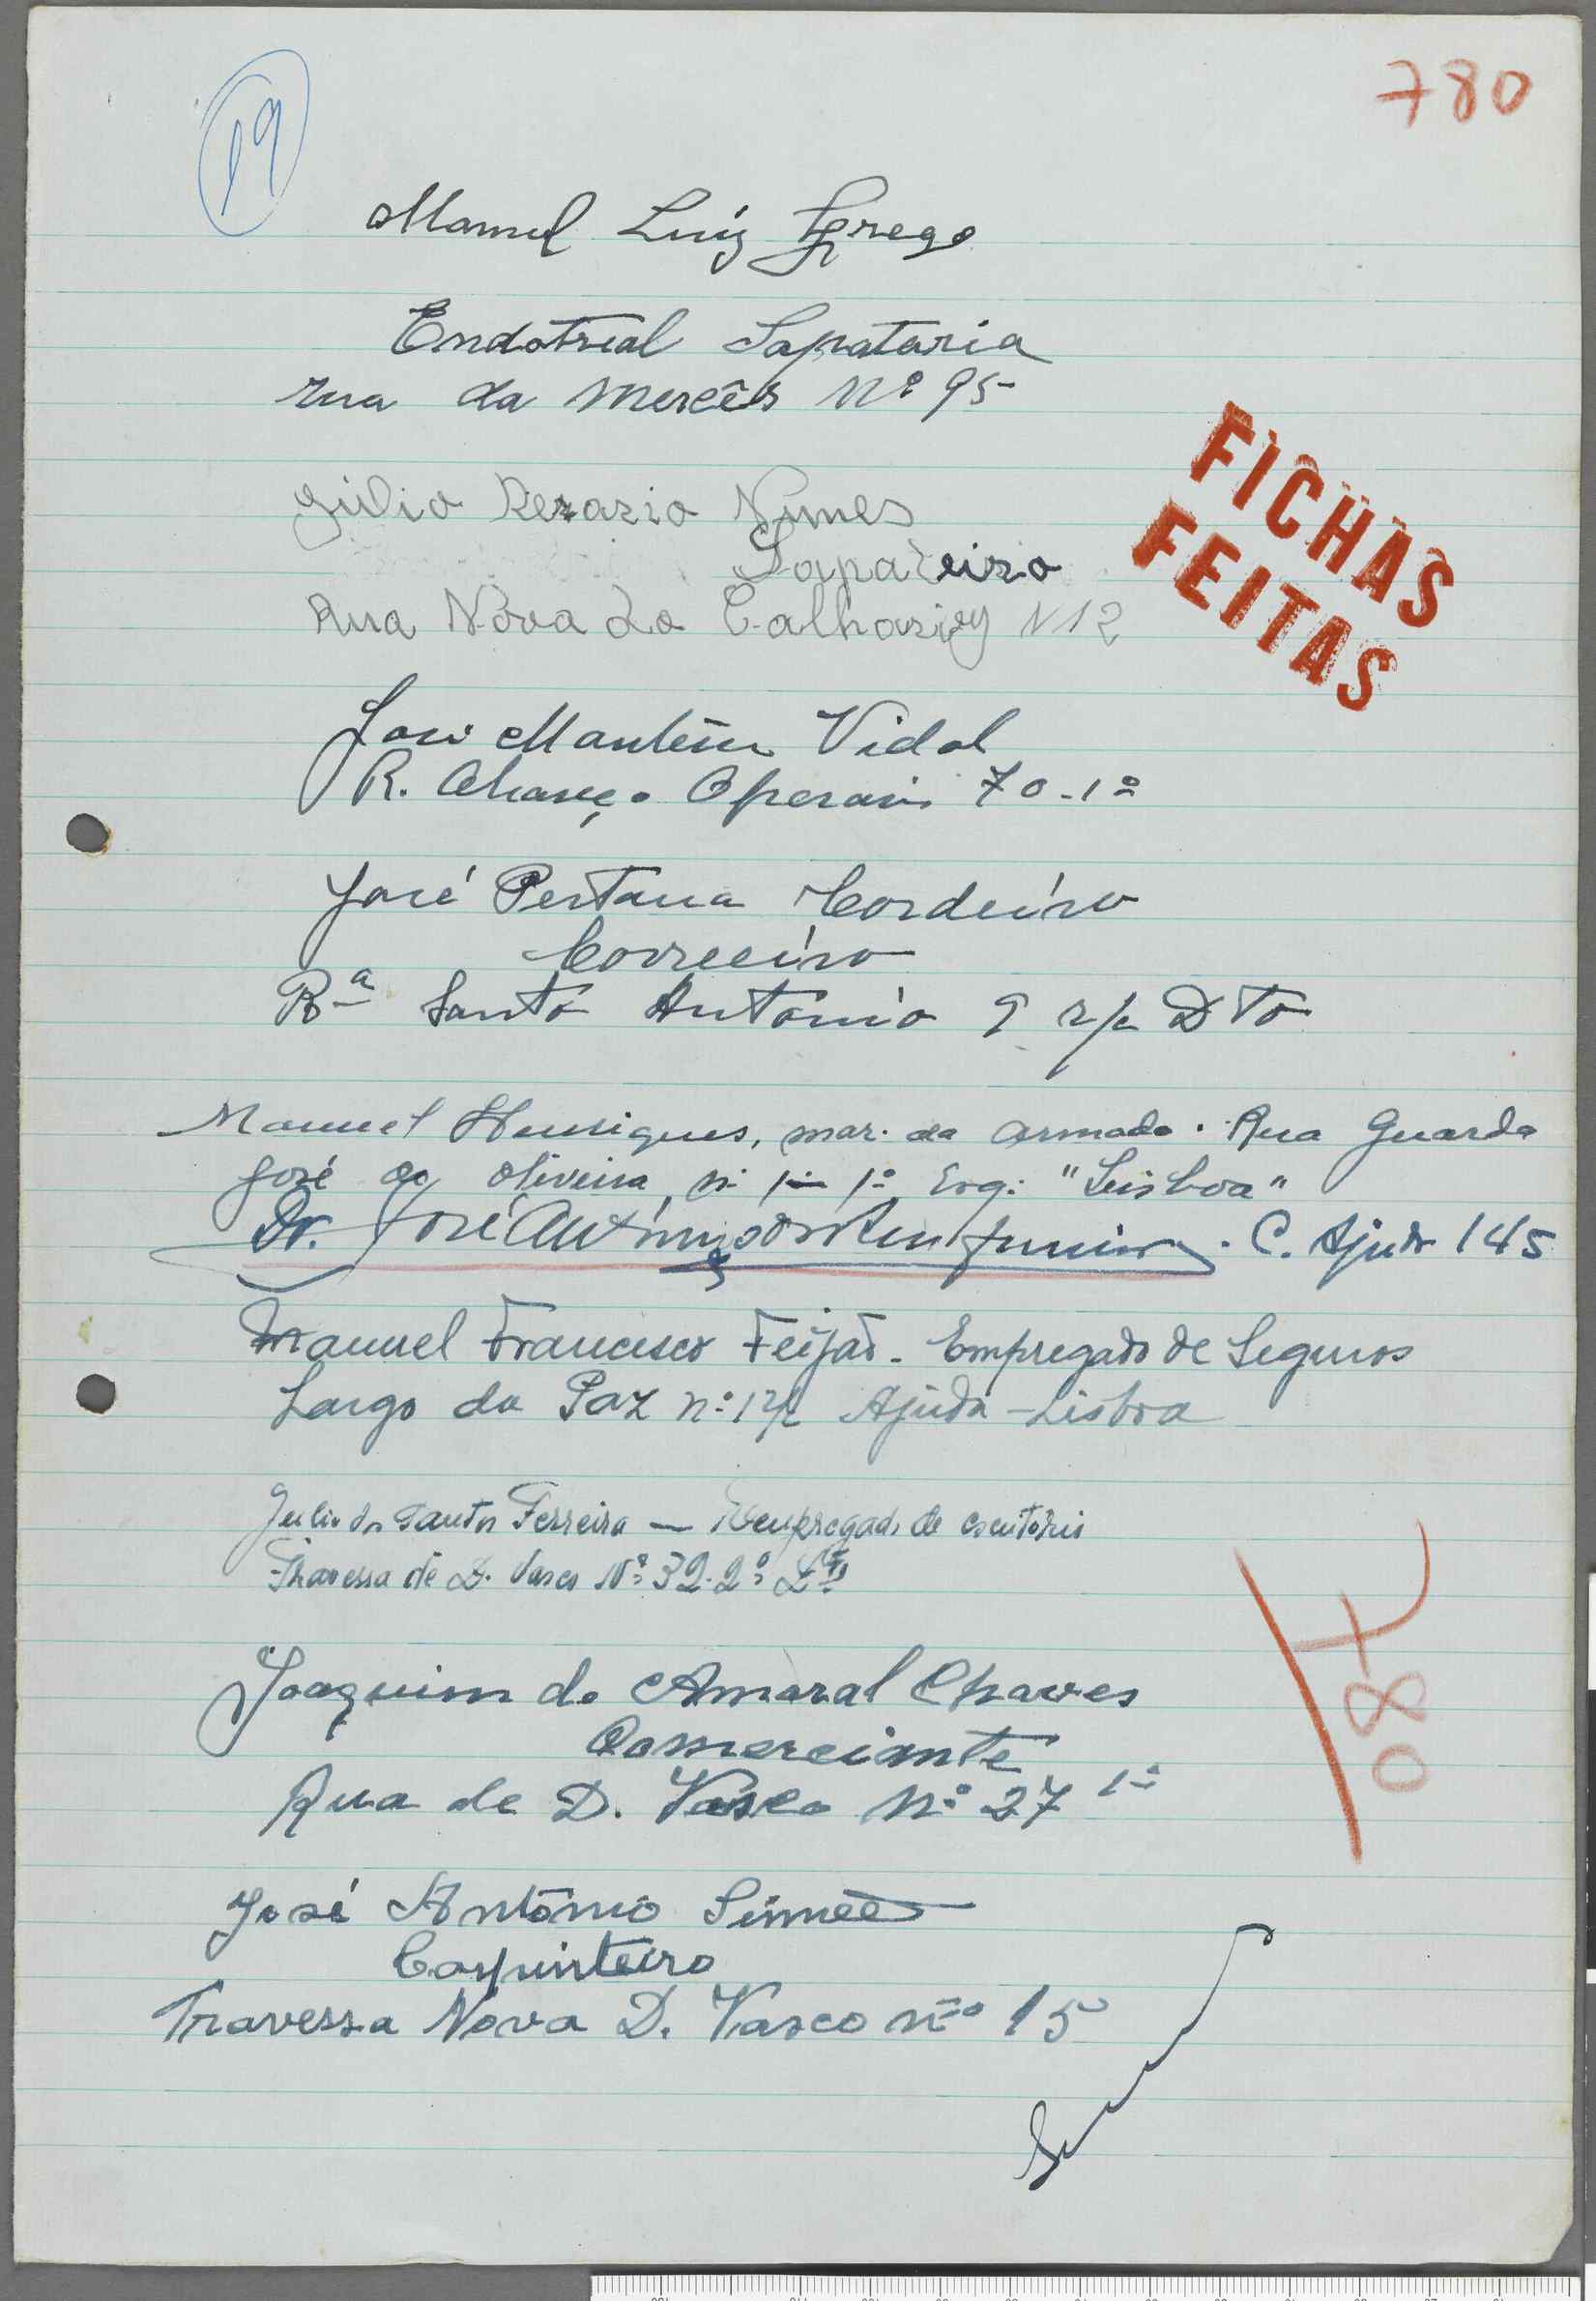 19
780
Manuel Luiz Grego
Endotreal Sapataria
rua da Mercês Nº 95
FICHAS
FEITAS
Júlio Rezario Nunes
Sapateiro
Rua Nova do Calhariz N 12
José Vidal
R. Aliança Operaria 70-1º
José Pestana Cordeiro
Correeiro
Rª Santo António 9 r/c Dto
Manuel Henriques, mar. da Armada. Rua Guarda
José de Oliveira, nº 1 1º Esq: "Lisboa"
Dr. José Junior. C. Ajuda 145
Manuel Francisco Feijão - Empregado de Seguros
Largo da Paz nº 1 r/c Ajuda - Lisboa
Julio dos Santos Ferreira — Empregado de escritório
Travessa de D. Vasco Nº 32-2º
780
Joaquim do Amaral Chaves
Comerciante
Rua de D. Vasco Nº 27 1º
José António
Carpinteiro
Travessa Nova D. Vasco nº 15